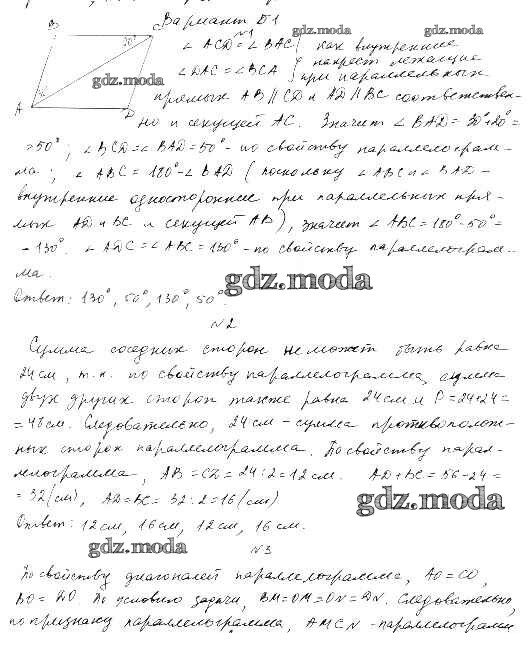 Вариант Б1
№1
B C
20°
A D
∠ACD = ∠BAC как внутренние
∠DAC = ∠BCA накрест лежащие
при параллельных
прямых AB || CD и AD || BC соответствен-
но и секущей AC. Значит ∠BAD = 30°+20° =
= 50°; ∠BCD = ∠BAD = 50° - по свойству параллелограм-
ма; ∠ABC = 180° - ∠BAD (поскольку ∠ABC и ∠BAD -
внутренние односторонние при параллельных пря-
мых AD и BC и секущей AB), значит ∠ABC = 180° - 50° =
= 130°. ∠ADC = ∠ABC = 130° - по свойству параллелограм-
ма.
Ответ: 130°, 50°, 130°, 50°.
№2
Сумма соседних сторон не может быть равна
24 см, т.к. по свойству параллелограмма, сумма
двух других сторон также равна 24 см и P = 24+24 =
= 48 см. Следовательно, 24 см - сумма противополож-
ных сторон параллелограмма. По свойству парал-
лелограмма, AB = CD = 24 : 2 = 12 см. AD + BC = 56 - 24 =
= 32 (см), AD = BC = 32 : 2 = 16 (см)
Ответ: 12 см, 16 см, 12 см, 16 см.
№3
По свойству диагоналей параллелограмма, AO = CO,
BO = DO. По условию задачи, BM = OM = ON = DN. Следовательно,
по признаку параллелограмма, AMCN - параллелограмм
gdz.moda
gdz.moda
gdz.moda
gdz.moda
gdz.moda
gdz.moda